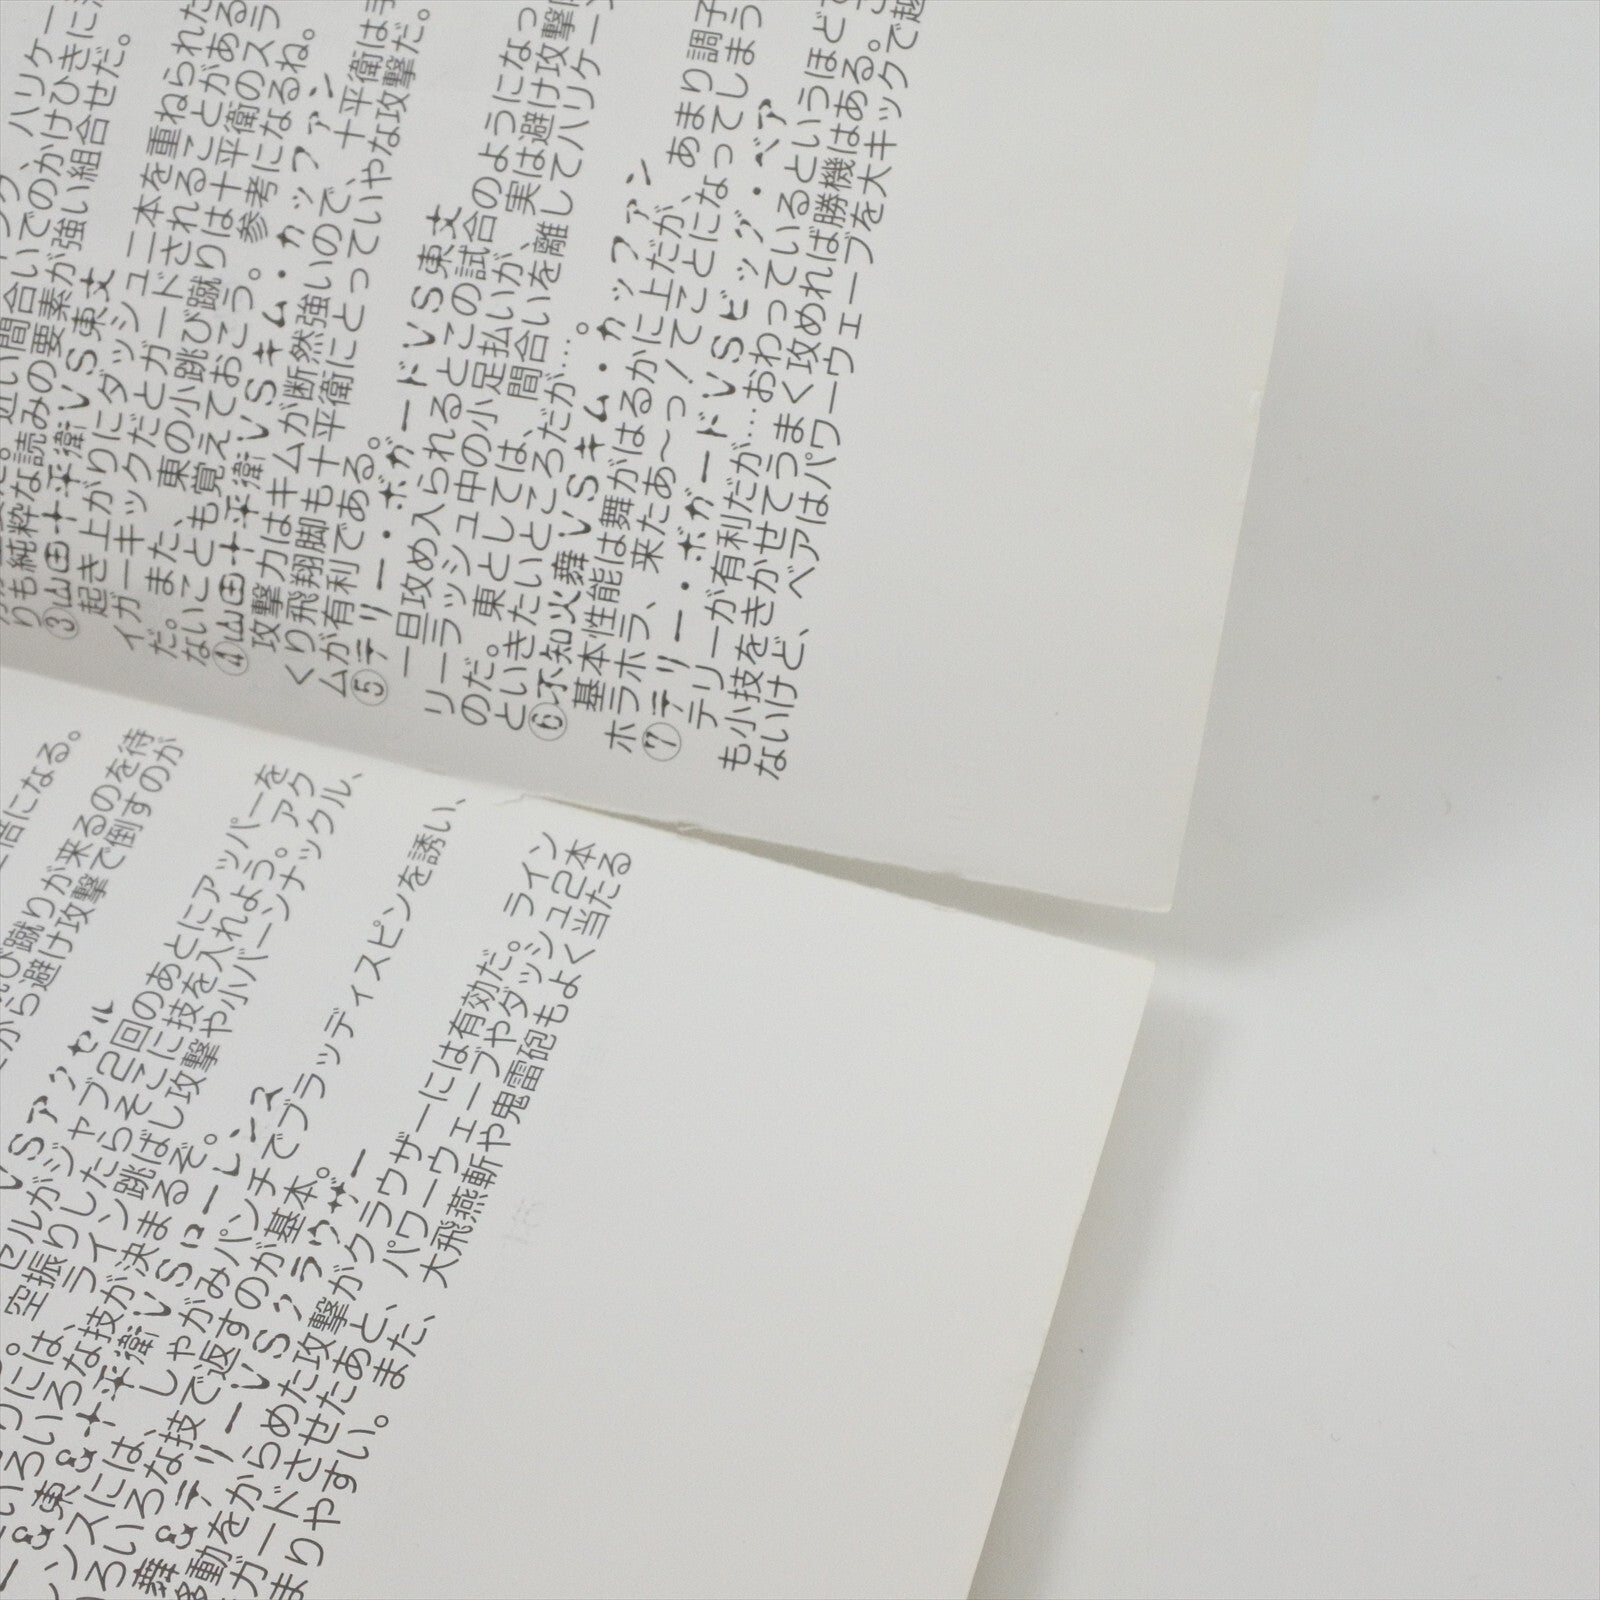 ハリケー
近い間合いでのかけひきに
りも純粋な読みの要素が強い組合せだ。
③山田十平衛VS東丈
起き上がりにダッシュ二本を重ねられた
イガーキックだとガードされることがある
だ。また、東の小跳び蹴りは十平衛のスラ
ないことも覚えておこう。参考になるね。
④山田十平衛VSキム・カッファン
攻撃力はキムが断然強いので、十平衛は手
くり飛翔脚も十平衛にとっていやな攻撃だ。
ムが有利である。
⑤テリー・ボガードVS東丈
一旦攻め入られるとこの試合のようになっ
リーラッシュ中の小足払いが、実は避け攻撃
のだ。東としては、間合いを離してハリケー
といきたいところだが…。
⑥不知火舞VSキム・カッファン
基本性能は舞がはるかに上だが、あまり調子
ホラホラ、来たあ〜っ！てことになってしまう
⑦テリー・ボガードVSビッグ・ベア
テリーが有利だが…おわっているというほど
も小技をきかせてうまく攻めれば勝機はある。
ないけど、ベアはパワーウェーブを大キックで越
倍になる。
び蹴りが来るのを待
から避け攻撃で倒すのが
VSアクセル
セルがジャブ2回のあとにアッパーを
空振りしたらそこに技を入れよう。アク
には、ライン跳ばし攻撃や小バーンナックル、
いろいろな技が決まるぞ。
東&十平衛VSローレンス
スには、しゃがみパンチでブラッディスピンを誘い、
いろいろな技で返すのが基本。
舞&テリーVSクラウザー
動をからめた攻撃がクラウザーには有効だ。ライン
ガードさせたあと、パワーウェーブやダッシュ2本
まりやすい。また、大飛燕斬や鬼雷砲もよく当たる